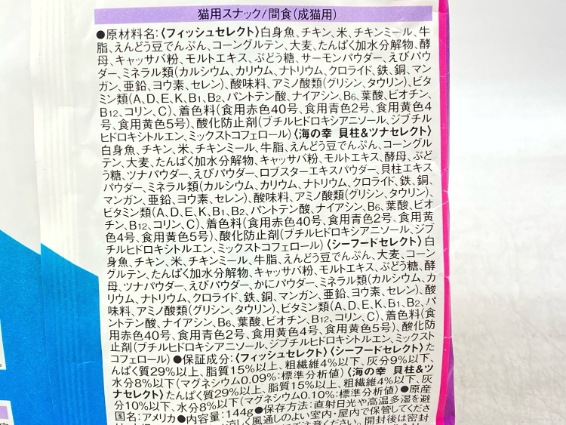 猫用スナック/間食(成猫用)
●原材料名:〈フィッシュセレクト〉白身魚、チキン、米、チキンミール、牛
脂、えんどう豆でんぷん、コーングルテン、大麦、たんぱく加水分解物、酵
母、キャッサバ粉、モルトエキス、ぶどう糖、サーモンパウダー、えびパウ
ダー、ミネラル類(カルシウム、カリウム、ナトリウム、クロライド、鉄、銅、マン
ガン、亜鉛、ヨウ素、セレン)、酸味料、アミノ酸類(グリシン、タウリン)、ビタ
ミン類(A、D、E、K、B1、B2、パントテン酸、ナイアシン、B6、葉酸、ビオチン、
B12、コリン、C)、着色料(食用赤色40号、食用青色2号、食用黄色4
号、食用黄色5号)、酸化防止剤(ブチルヒドロキシアニソール、ジブチル
ヒドロキシトルエン、ミックストコフェロール)〈海の幸 貝柱&ツナセレクト〉
白身魚、チキン、米、チキンミール、牛脂、えんどう豆でんぷん、コーングル
テン、大麦、たんぱく加水分解物、キャッサバ粉、モルトエキス、酵母、ぶど
う糖、ツナパウダー、えびパウダー、ロブスターエキスパウダー、貝柱エキス
パウダー、ミネラル類(カルシウム、カリウム、ナトリウム、クロライド、鉄、銅、
マンガン、亜鉛、ヨウ素、セレン)、酸味料、アミノ酸類(グリシン、タウリン)、
ビタミン類(A、D、E、K、B1、B2、パントテン酸、ナイアシン、B6、葉酸、ビオ
チン、B12、コリン、C)、着色料(食用赤色40号、食用青色2号、食用黄
色4号、食用黄色5号)、酸化防止剤(ブチルヒドロキシアニソール、ジブチ
ルヒドロキシトルエン、ミックストコフェロール)〈シーフードセレクト〉白
身魚、米、チキン、チキンミール、牛脂、えんどう豆でんぷん、大麦、コーン
グルテン、たんぱく加水分解物、キャッサバ粉、モルトエキス、ぶどう糖、酵
母、ツナパウダー、えびパウダー、かにパウダー、ミネラル類(カルシウム、カ
リウム、ナトリウム、クロライド、鉄、銅、マンガン、亜鉛、ヨウ素、セレン)、酸
味料、アミノ酸類(グリシン、タウリン)、ビタミン類(A、D、E、K、B1、B2、パ
ントテン酸、ナイアシン、B6、葉酸、ビオチン、B12、コリン、C)、着色料(食
用赤色40号、食用青色2号、食用黄色4号、食用黄色5号)、酸化防
止剤(ブチルヒドロキシアニソール、ジブチルヒドロキシトルエン、ミックスト
コフェロール) ●保証成分:〈フィッシュセレクト〉〈シーフードセレクト〉た
んぱく質29%以上、脂質15%以上、粗繊維4%以下、灰分9%以下、
水分8%以下(マグネシウム0.09%:標準分析値)〈海の幸 貝柱&ツ
ナセレクト〉たんぱく質29%以上、脂質15%以上、粗繊維4%以下、灰
分10%以下、水分8%以下(マグネシウム0.10%:標準分析値) ●原産
国名:アメリカ ●内容量:144g ●保存方法:直射日光や高温多湿を避
涼しく風通しのよい室内・屋内で保管してくださ
開封後は密封